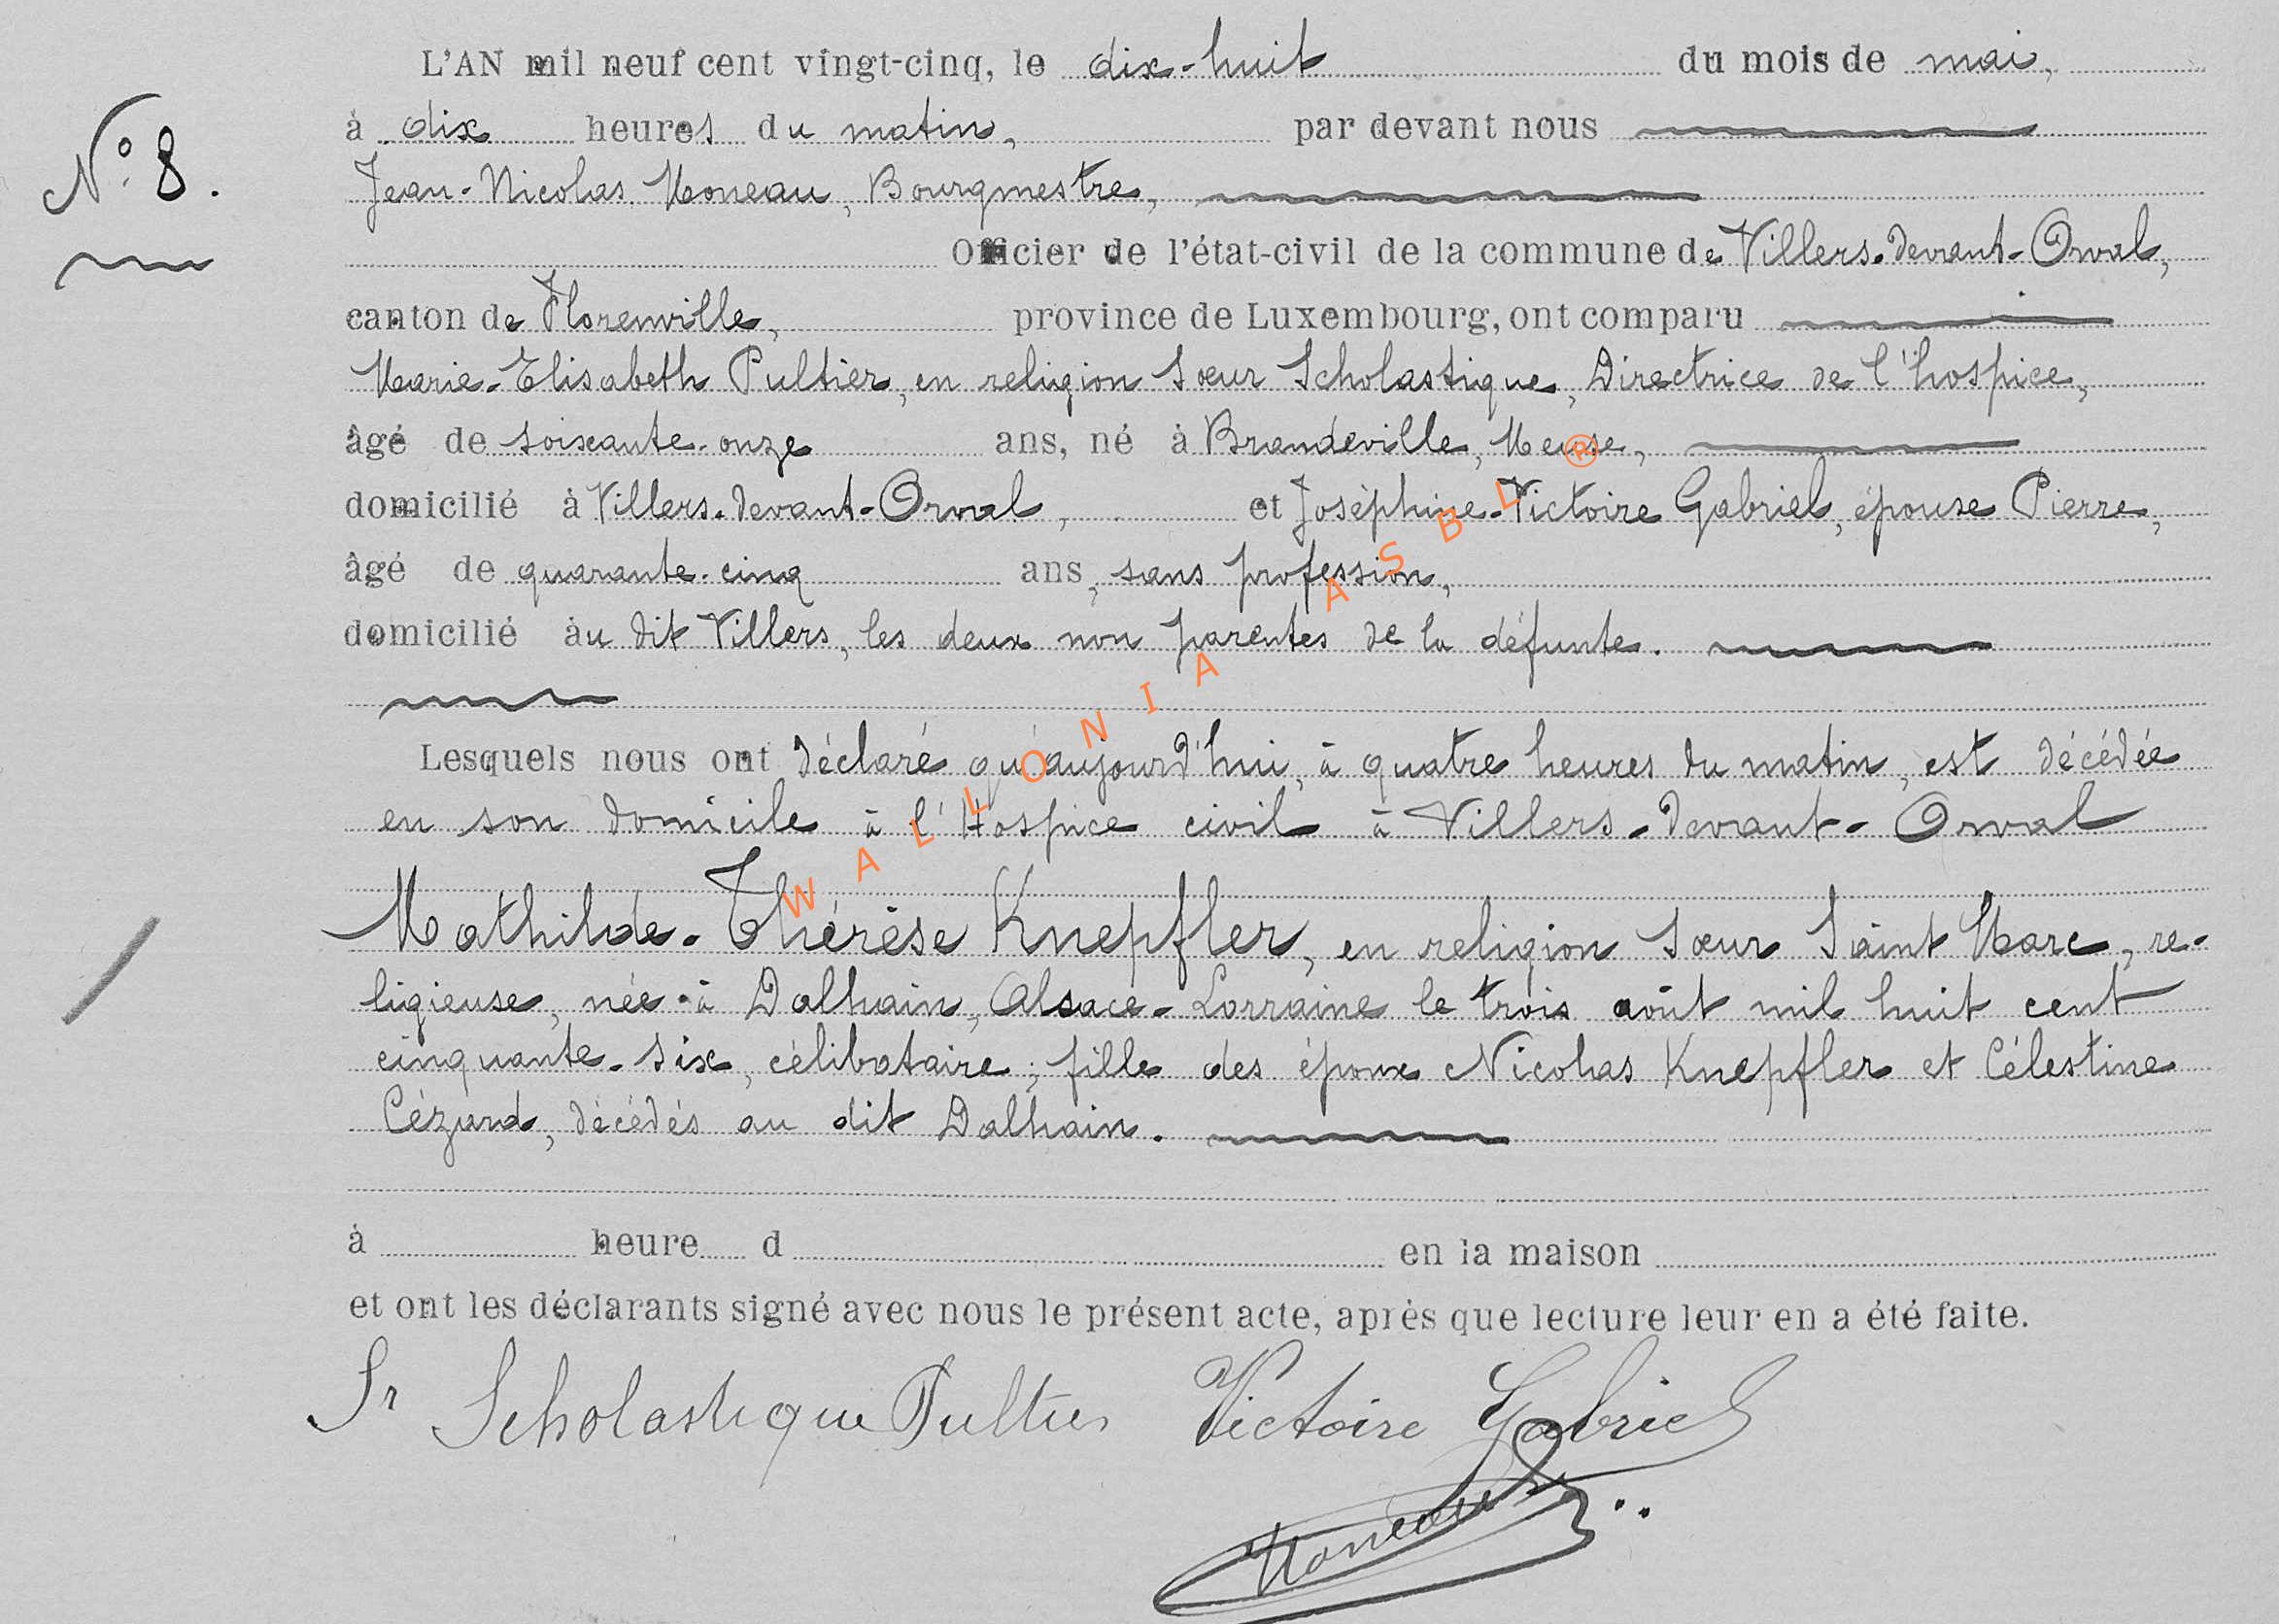 L'AN mil neuf cent vingt-cinq, le dix-huit du mois de mai,
N° 8.
à dix heures du matin, par devant nous
Jean-Nicolas Moneau, Bourgmestre,
Officier de l'état-civil de la commune de Villers-devant-Orval,
canton de Florenville, province de Luxembourg, ont comparu
Marie-Elisabeth Pultier, en religion Sœur Scholastique, Directrice de l'hospice,
âgé de soixante-onze ans, né à Brandeville, Meuse,
domicilié à Villers-devant-Orval, et Joséphine-Victoire Gabriel, épouse Pierre,
âgé de quarante-cinq ans, sans profession,
domicilié àu dit Villers, les deux non parentes de la défunte.
Lesquels nous ont déclaré qu'aujourd'hui, à quatre heures du matin, est décédée
en son domicile à l'Hospice civil à Villers-devant-Orval
Mathilde-Thérèse Knepfler, en religion Sœur Saint Marc, re-
ligieuse, née à Dalhain, Alsace-Lorraine le trois août mil huit cent
cinquante-six, célibataire; fille des époux Nicolas Knepfler et Célestine
Cézard, décédés au dit Dalhain.
à heure d en la maison
et ont les déclarants signé avec nous le présent acte, après que lecture leur en a été faite.
Sr Scholastique Pultier Victoire Gabriel
Moneau
WALLONIA ASBL ®